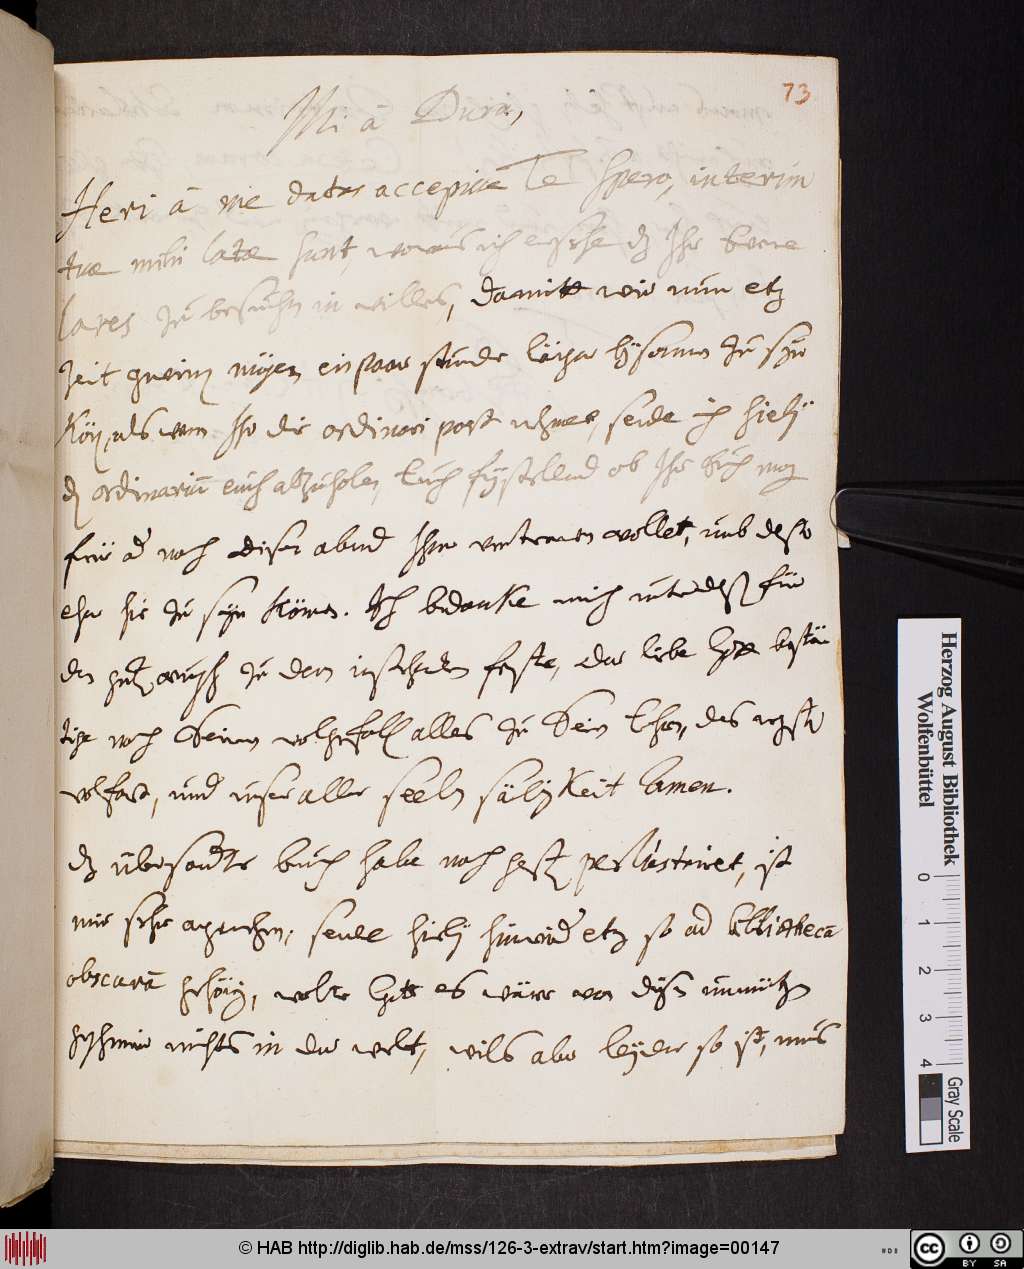 73
Mi à Dura,
Heri à me datas accepisse Te spero, interim
tuæ mihi latæ sunt, woraus ich ersehe dz Ihr
Lares zu besuchen in willes, damitt wir nun etz
Zeit gewinnen mögen ein paar stunde länger beysammen zu seyn
als wenn Ihr die ordinari post nehmet, sende ich hiebey
ordinarium euch abzuholen, Euch ob Ihr Euch
frü od noch diesen abend Ihm vertrauen wollet, umb desto
eher hie zu seyn können. Ich bedanke mich unterdeß für
den wunsch zu dem instehenden feste, der liebe Gott bestä
tige nach Seinem wolgefall alles zu Sein Ehren, des
wolfart, und unser aller seelen säligkeit Amen.
dz übersandte buch habe noch perlustriret, ist
mir sehr angenehm, sende hiebey hinwied etz so ad bibliothecā
obscurā gehörig, wolte Gott es wäre von diesen unnützen
nichts in der welt, wils aber leyder so ist, mus
Herzog August Bibliothek
Wolfenbüttel
0 1 2 3 4
Gray Scale
© HAB http://diglib.hab.de/mss/126-3-extrav/start.htm?image=00147
HAB
CC BY SA